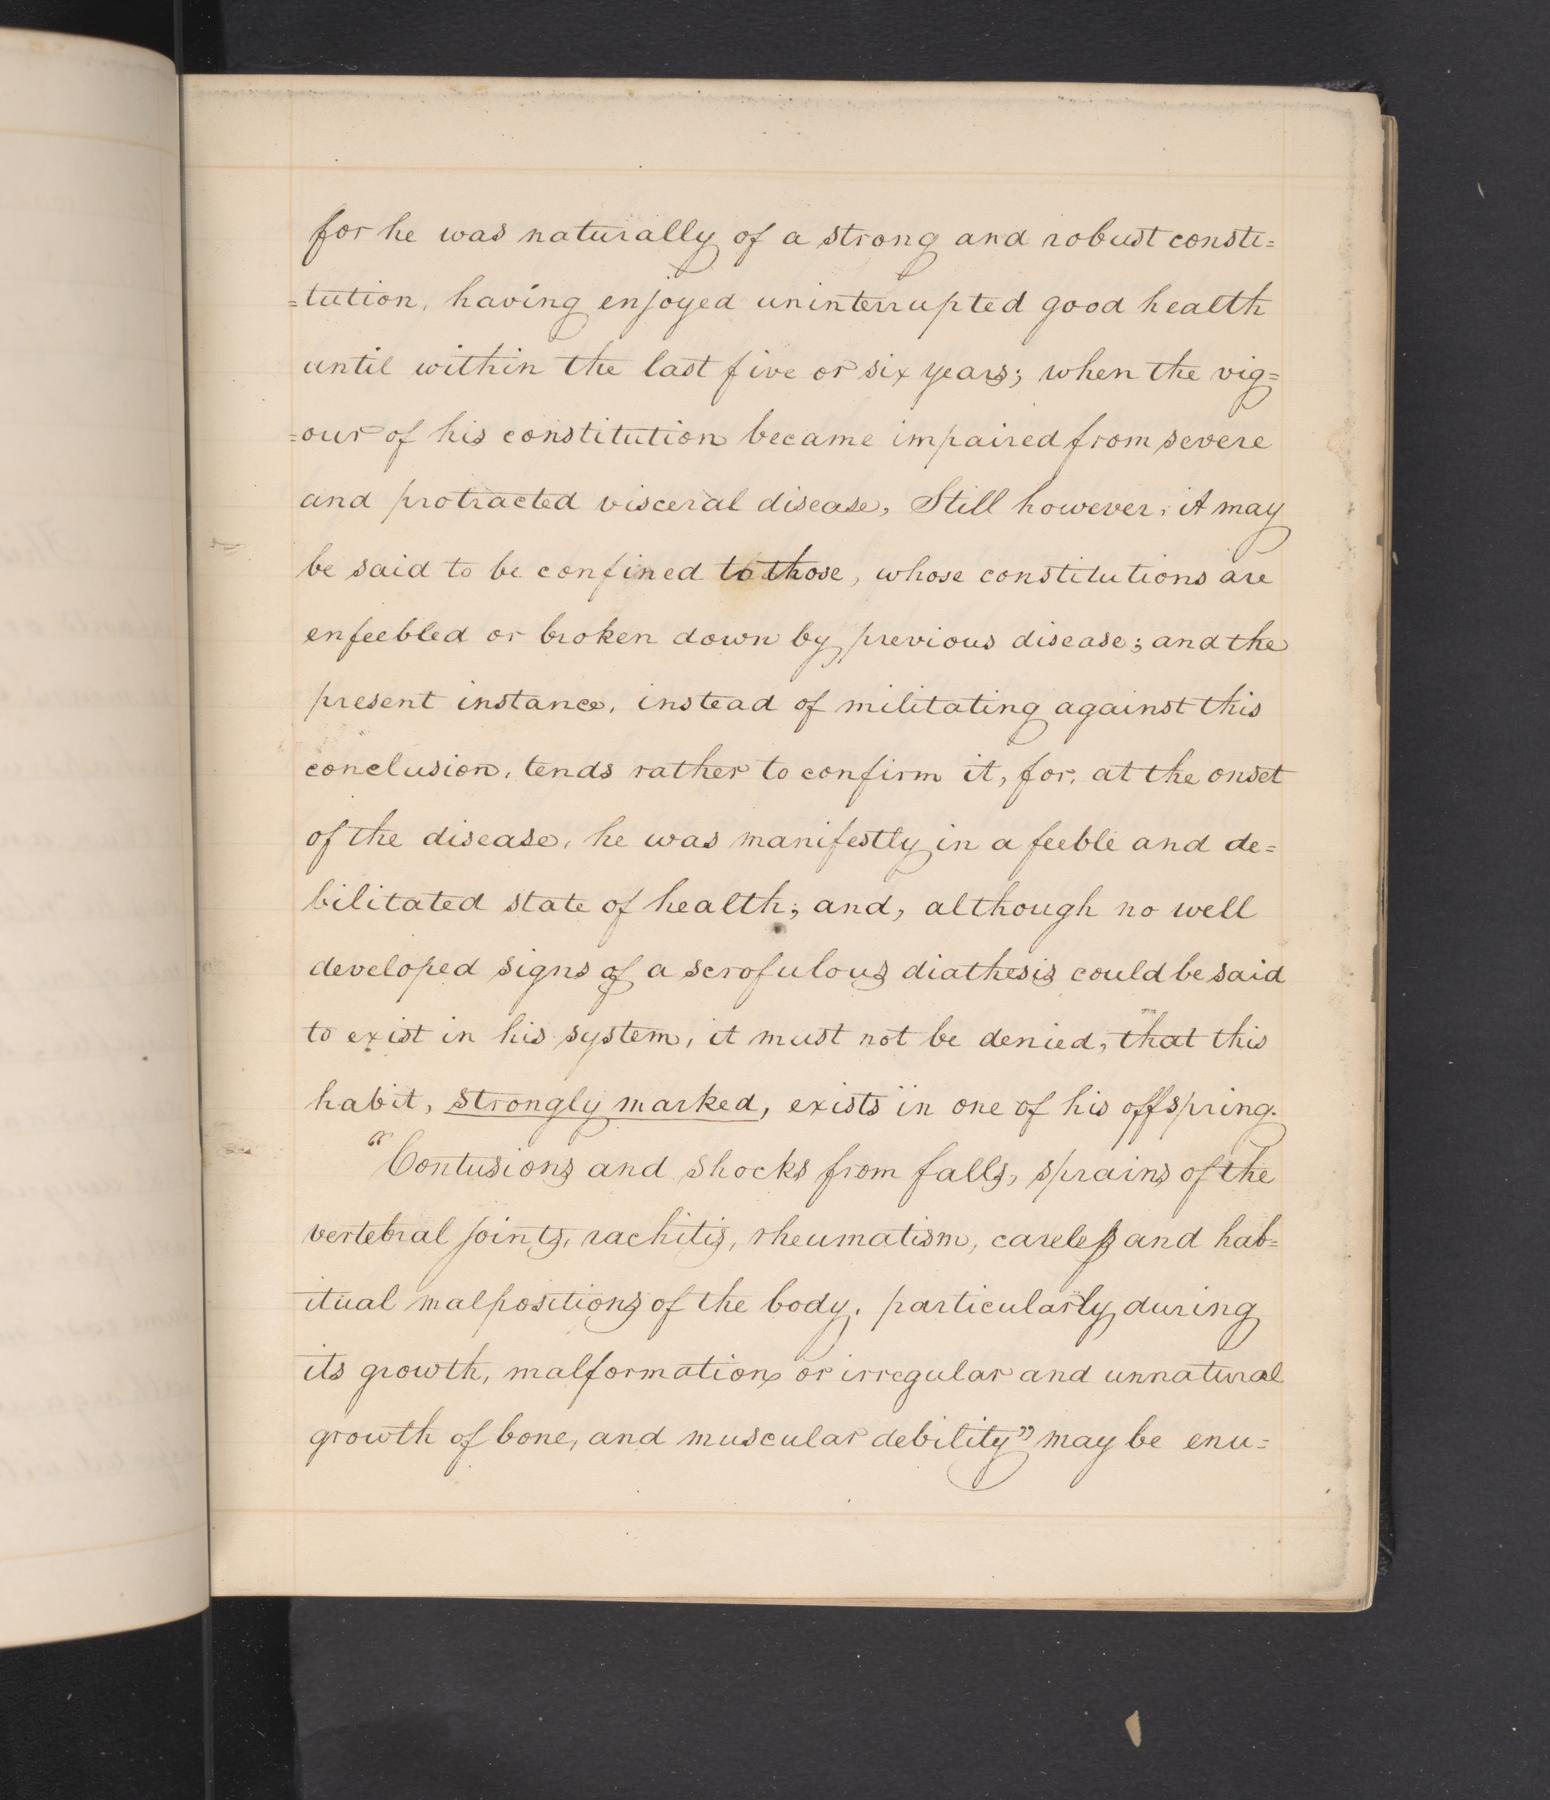 for he was naturally of a strong and robust consti=
=tution, having enjoyed uninterrupted good health
until within the last five or six years; when the vig=
=our of his constitution became impaired from severe
and protracted visceral disease, Still however, it may
be said to be confined to those, whose constitutions are
enfeebled or broken down by previous disease; and the
present instance, instead of militating against this
conclusion, tends rather to confirm it, for, at the onset
of the disease, he was manifestly in a feeble and de=
bilitated state of health; and, although no well
developed signs of a scrofulous diathesis could be said
to exist in his system, it must not be denied, that this
habit, strongly marked, exists in one of his offspring.
"Contusions and shocks from falls, sprains of the
vertebral joints, rachitis, rheumatism, careless and hab=
itual malpositions of the body, particularly during
its growth, malformation or irregular and unnatural
growth of bone, and muscular debility" may be enu=